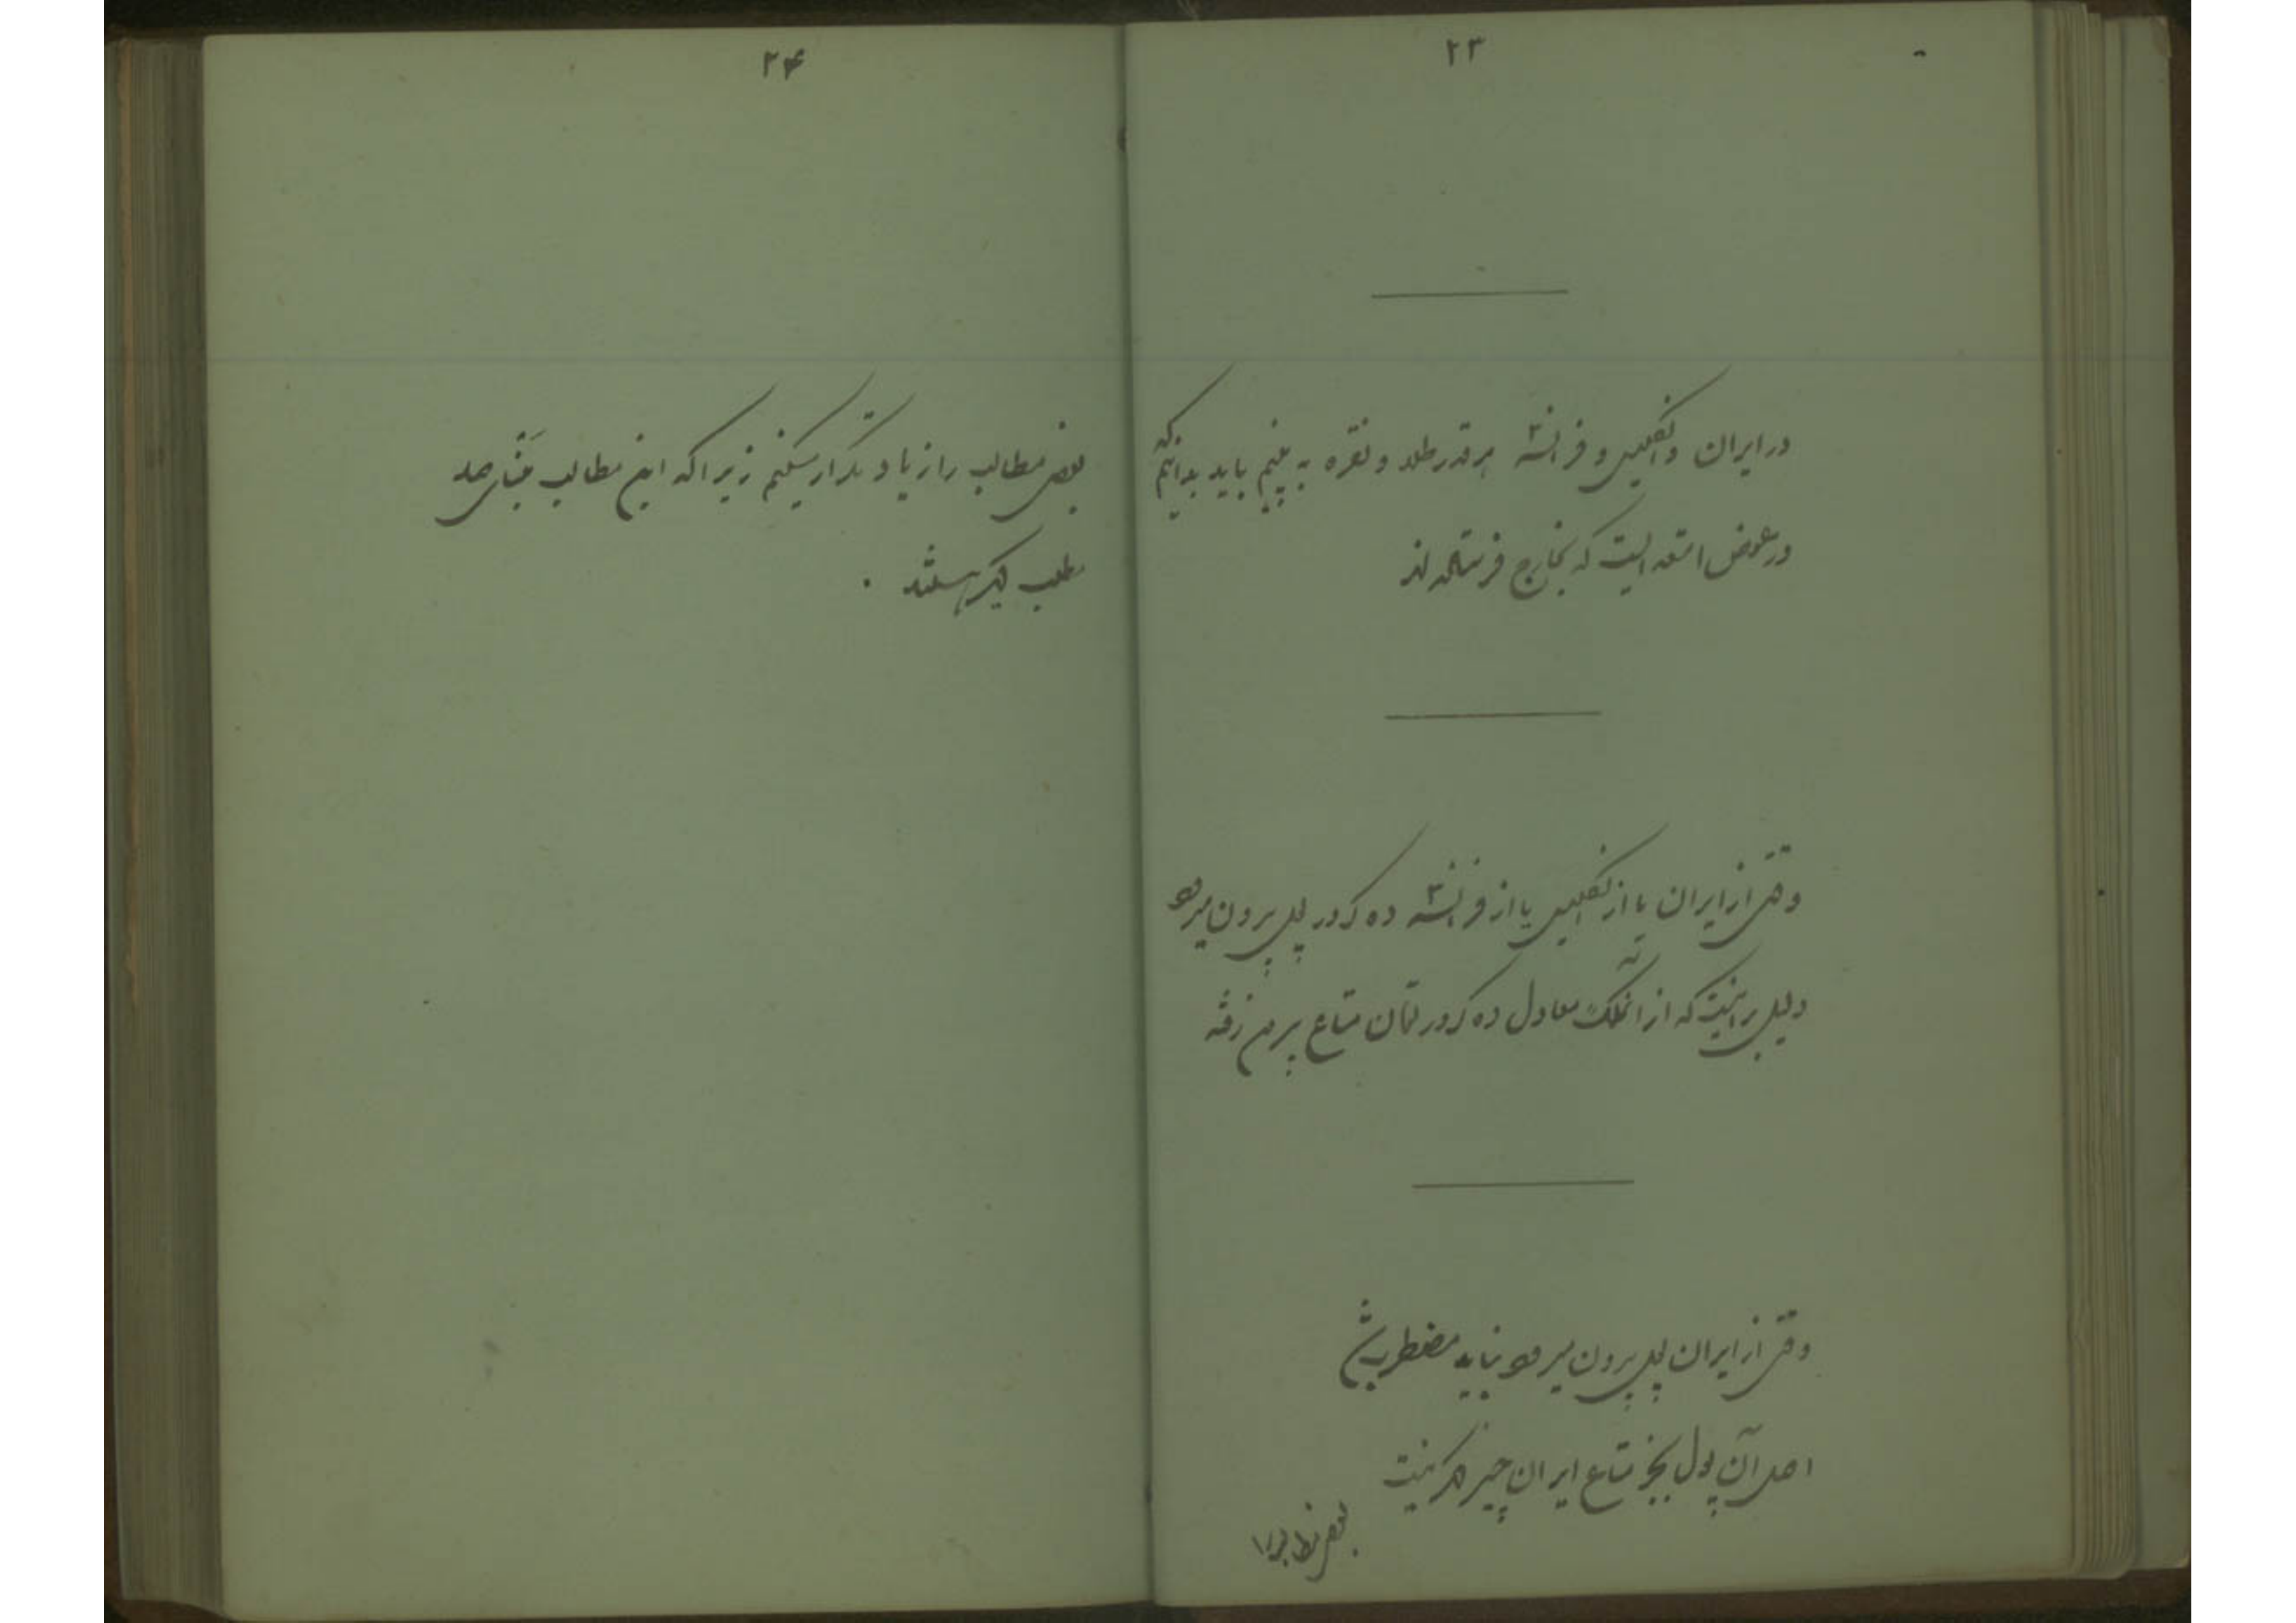 ۲۳
در ایران و انگلیس و فرانسه هر قدر طلا و نقره به بینیم باید بدانیم که
در عوض امتعه ایست که بخارج فرستاده اند
وقتی از ایران یا از انگلیس یا از فرانسه ده کرور پول بیرون میرود
دلیل بر اینست که از آن ملک معادل ده کرور تومان متاع بیرون نرفته
وقتی از ایران پول بیرون میرود نباید مضطرب شد
اصل آن پول بجز متاع ایران چیز دیگر نیست
بعضی مطالب را
۲۴
بعضی مطالب را زیاد تکرار میکنیم زیرا که این مطالب بنیاد
مطلب دیگر هستند .